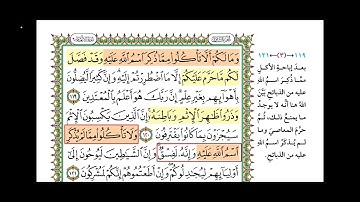 وَمَا لَكُمْ أَلَّا تَأْكُلُوا مِمَّا ذُكِرَ اسْمُ اللَّهِ عَلَيْهِ وَقَدْ فَصَّلَ
لَكُم مَّا حَرَّمَ عَلَيْكُمْ إِلَّا مَا اضْطُرِرْتُمْ إِلَيْهِ وَإِنَّ كَثِيرًا لَّيُضِلُّونَ
بِأَهْوَائِهِم بِغَيْرِ عِلْمٍ إِنَّ رَبَّكَ هُوَ أَعْلَمُ بِالْمُعْتَدِينَ ١١٩
وَذَرُوا ظَاهِرَ الْإِثْمِ وَبَاطِنَهُ إِنَّ الَّذِينَ يَكْسِبُونَ الْإِثْمَ
سَيُجْزَوْنَ بِمَا كَانُوا يَقْتَرِفُونَ ١٢٠ وَلَا تَأْكُلُوا مِمَّا لَمْ يُذْكَرِ
اسْمُ اللَّهِ عَلَيْهِ وَإِنَّهُ لَفِسْقٌ وَإِنَّ الشَّيَاطِينَ لَيُوحُونَ إِلَىٰ
أَوْلِيَائِهِمْ لِيُجَادِلُوكُمْ وَإِنْ أَطَعْتُمُوهُمْ إِنَّكُمْ لَمُشْرِكُونَ ١٢١
١١٩ (٣) ١٢١
بعدَ إباحةِ الأكلِ
ممَّا ذُكرَ اسمُ
اللهِ عليه من الذبائحِ بيَّنَ
اللهُ هنا أنَّه لا يوجدُ
ما يمنعُ ذلك، ثُمَّ
حرَّمَ المعاصيَ وما
لم يُذكرِ اسمُ اللهِ
عليه من الذبائحِ.